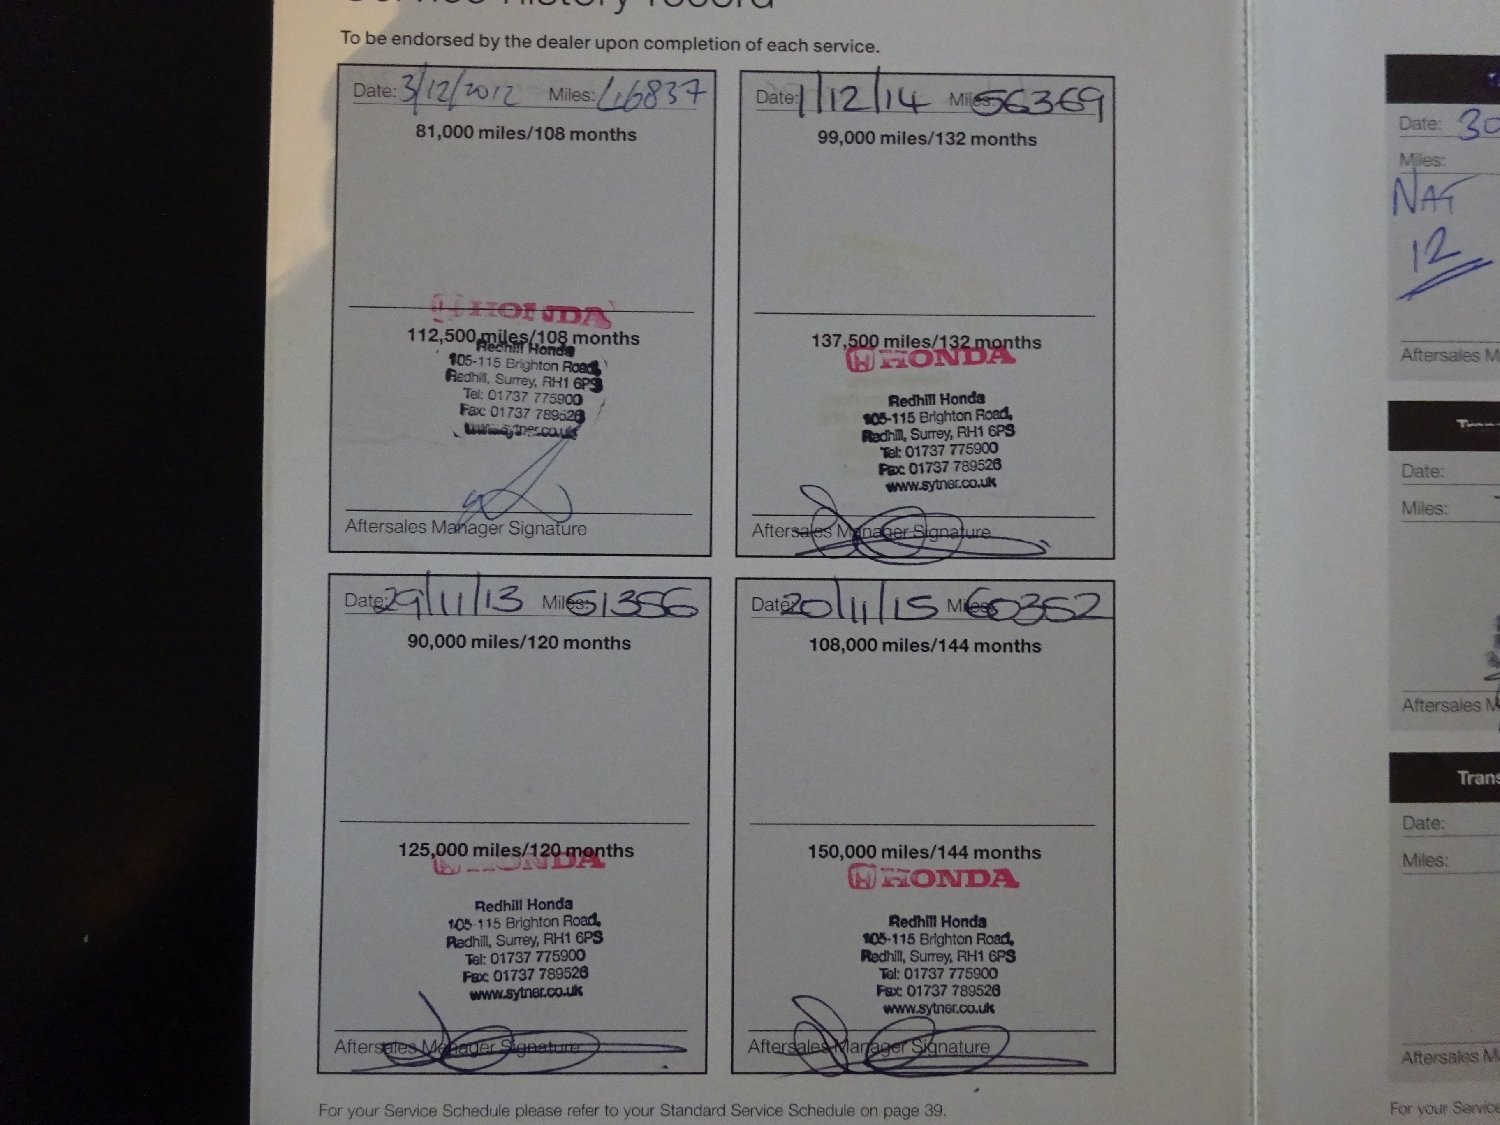 Service History record
To be endorsed by the dealer upon completion of each service.
Date: 3/12/2012 Miles: 46837
81,000 miles/108 months
HONDA
112,500 miles/108 months
Redhill Honda
105-115 Brighton Road,
Redhill, Surrey, RH1 6PS
Tel: 01737 775900
Fax: 01737 789526
www.sytner.co.uk
Aftersales Manager Signature
Date: 1/12/14 Miles: 56369
99,000 miles/132 months
137,500 miles/132 months
HONDA
Redhill Honda
105-115 Brighton Road,
Redhill, Surrey, RH1 6PS
Tel: 01737 775900
Fax: 01737 789526
www.sytner.co.uk
Aftersales Manager Signature
Date: 29/11/13 Miles: 51356
90,000 miles/120 months
125,000 miles/120 months
HONDA
Redhill Honda
105-115 Brighton Road,
Redhill, Surrey, RH1 6PS
Tel: 01737 775900
Fax: 01737 789526
www.sytner.co.uk
Aftersales Manager Signature
Date: 20/11/15 Miles: 60352
108,000 miles/144 months
150,000 miles/144 months
HONDA
Redhill Honda
105-115 Brighton Road,
Redhill, Surrey, RH1 6PS
Tel: 01737 775900
Fax: 01737 789526
www.sytner.co.uk
Aftersales Manager Signature
For your Service Schedule please refer to your Standard Service Schedule on page 39.
Date: 30
Miles:
NAT
12
Aftersales M
Date:
Miles:
Aftersales M
Trans
Date:
Miles:
Aftersales M
For your Service